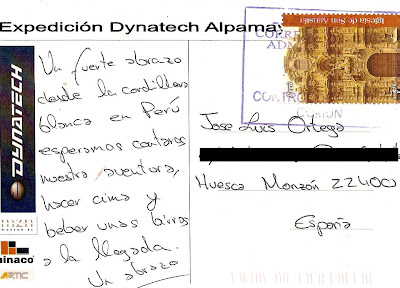 Expedición Dynatech Alpama
DYNATECH
Un fuerte abrazo
desde la cordillera
blanca en Perú
esperamos contaros
nuestra aventura,
hacer cima y
beber unas birras
a la llegada.
Un abrazo
inaco
ARTIC
Iglesia de San Agustín
CORRE
ADM
CONTRO
Jose Luis Ortega
Huesca Monzón 22400
España